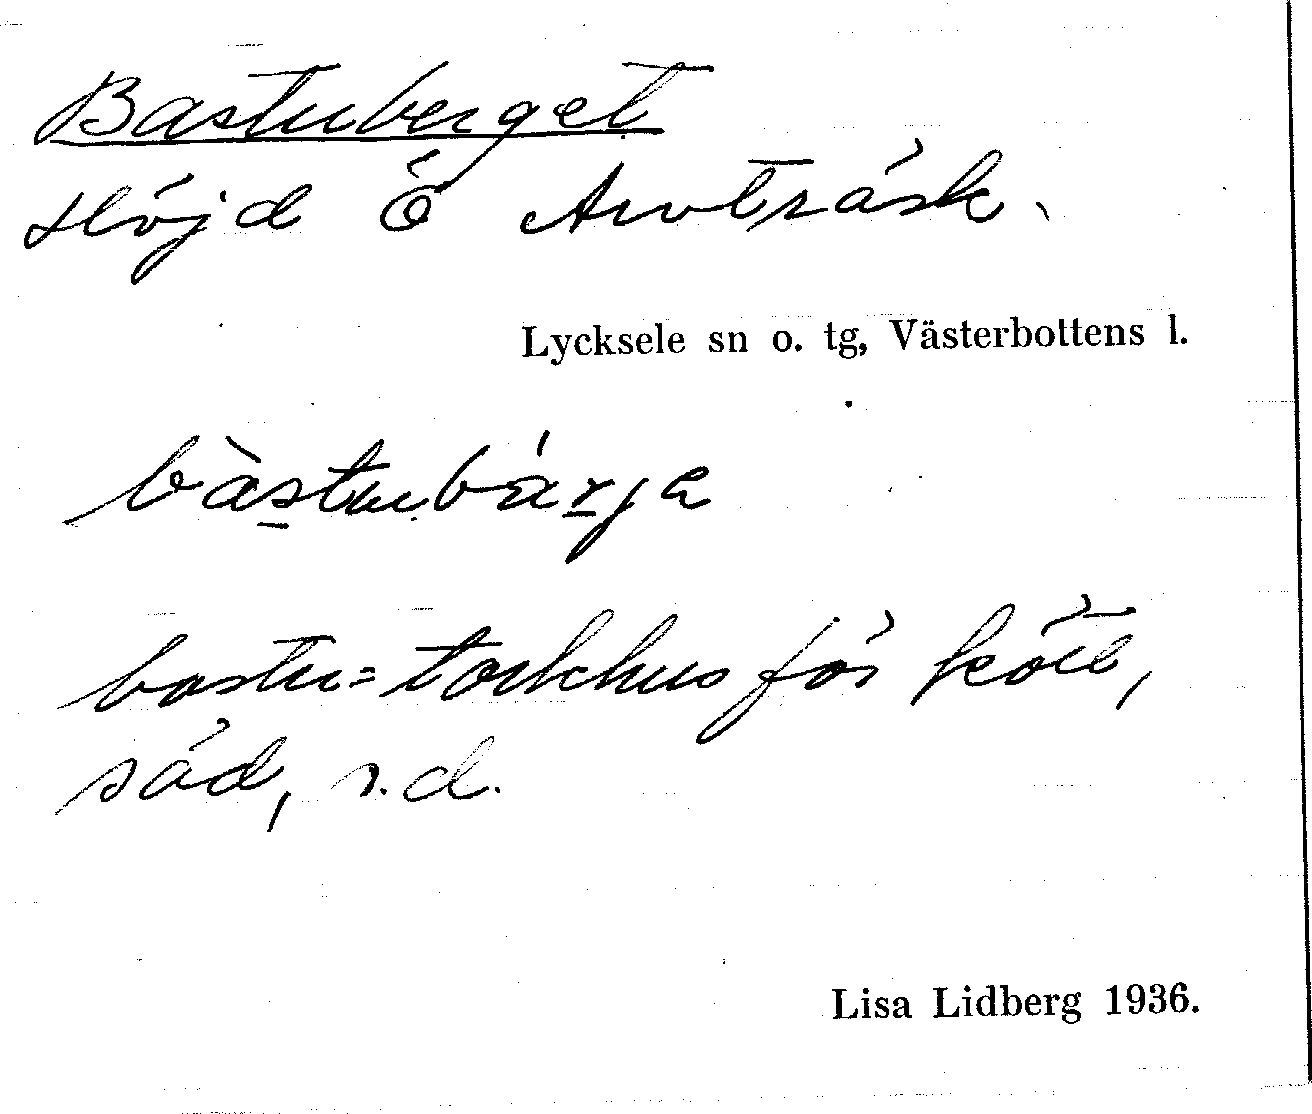 Bastuberget
Höjd Ö Arvträsk.
Lycksele sn o. tg, Västerbottens l.
bàstubárja
bastu = torkhus för kött,
säd, s.d.
Lisa Lidberg 1936.